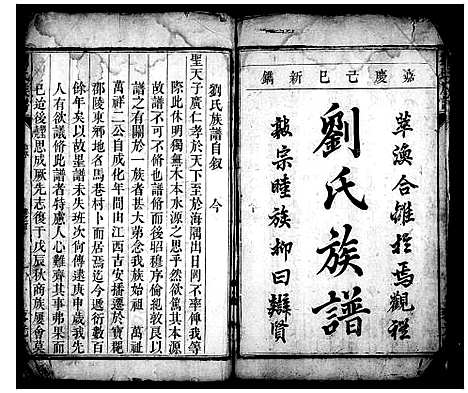 嘉慶己巳新鐫
萃渙合雝於焉觀程
劉氏族譜
敍宗睦族抑曰辯賢
劉氏族譜自叙
今
聖天子廣仁孝於天下至於海隅出日罔不率俾我等
際此休明獨無木本水源之思乎然欲篤其本源
故譜不可不脩也譜脩而後昭穆序倫紀敦艮以
譜之有關於一族者甚大弟念我族始祖 萬
萬祥二公自成化年間由江西吉安播遷於寳
邵陵東郷地名馬巷村卜而居焉迄今遞衍數百
餘年矣以故墨譜未失班次尚傳逮庚申歲我先
人有欲議脩此譜者特慮人心難齊其事弗果而
已迨後纘思成厥先志復于戊辰秋商族屢會莫